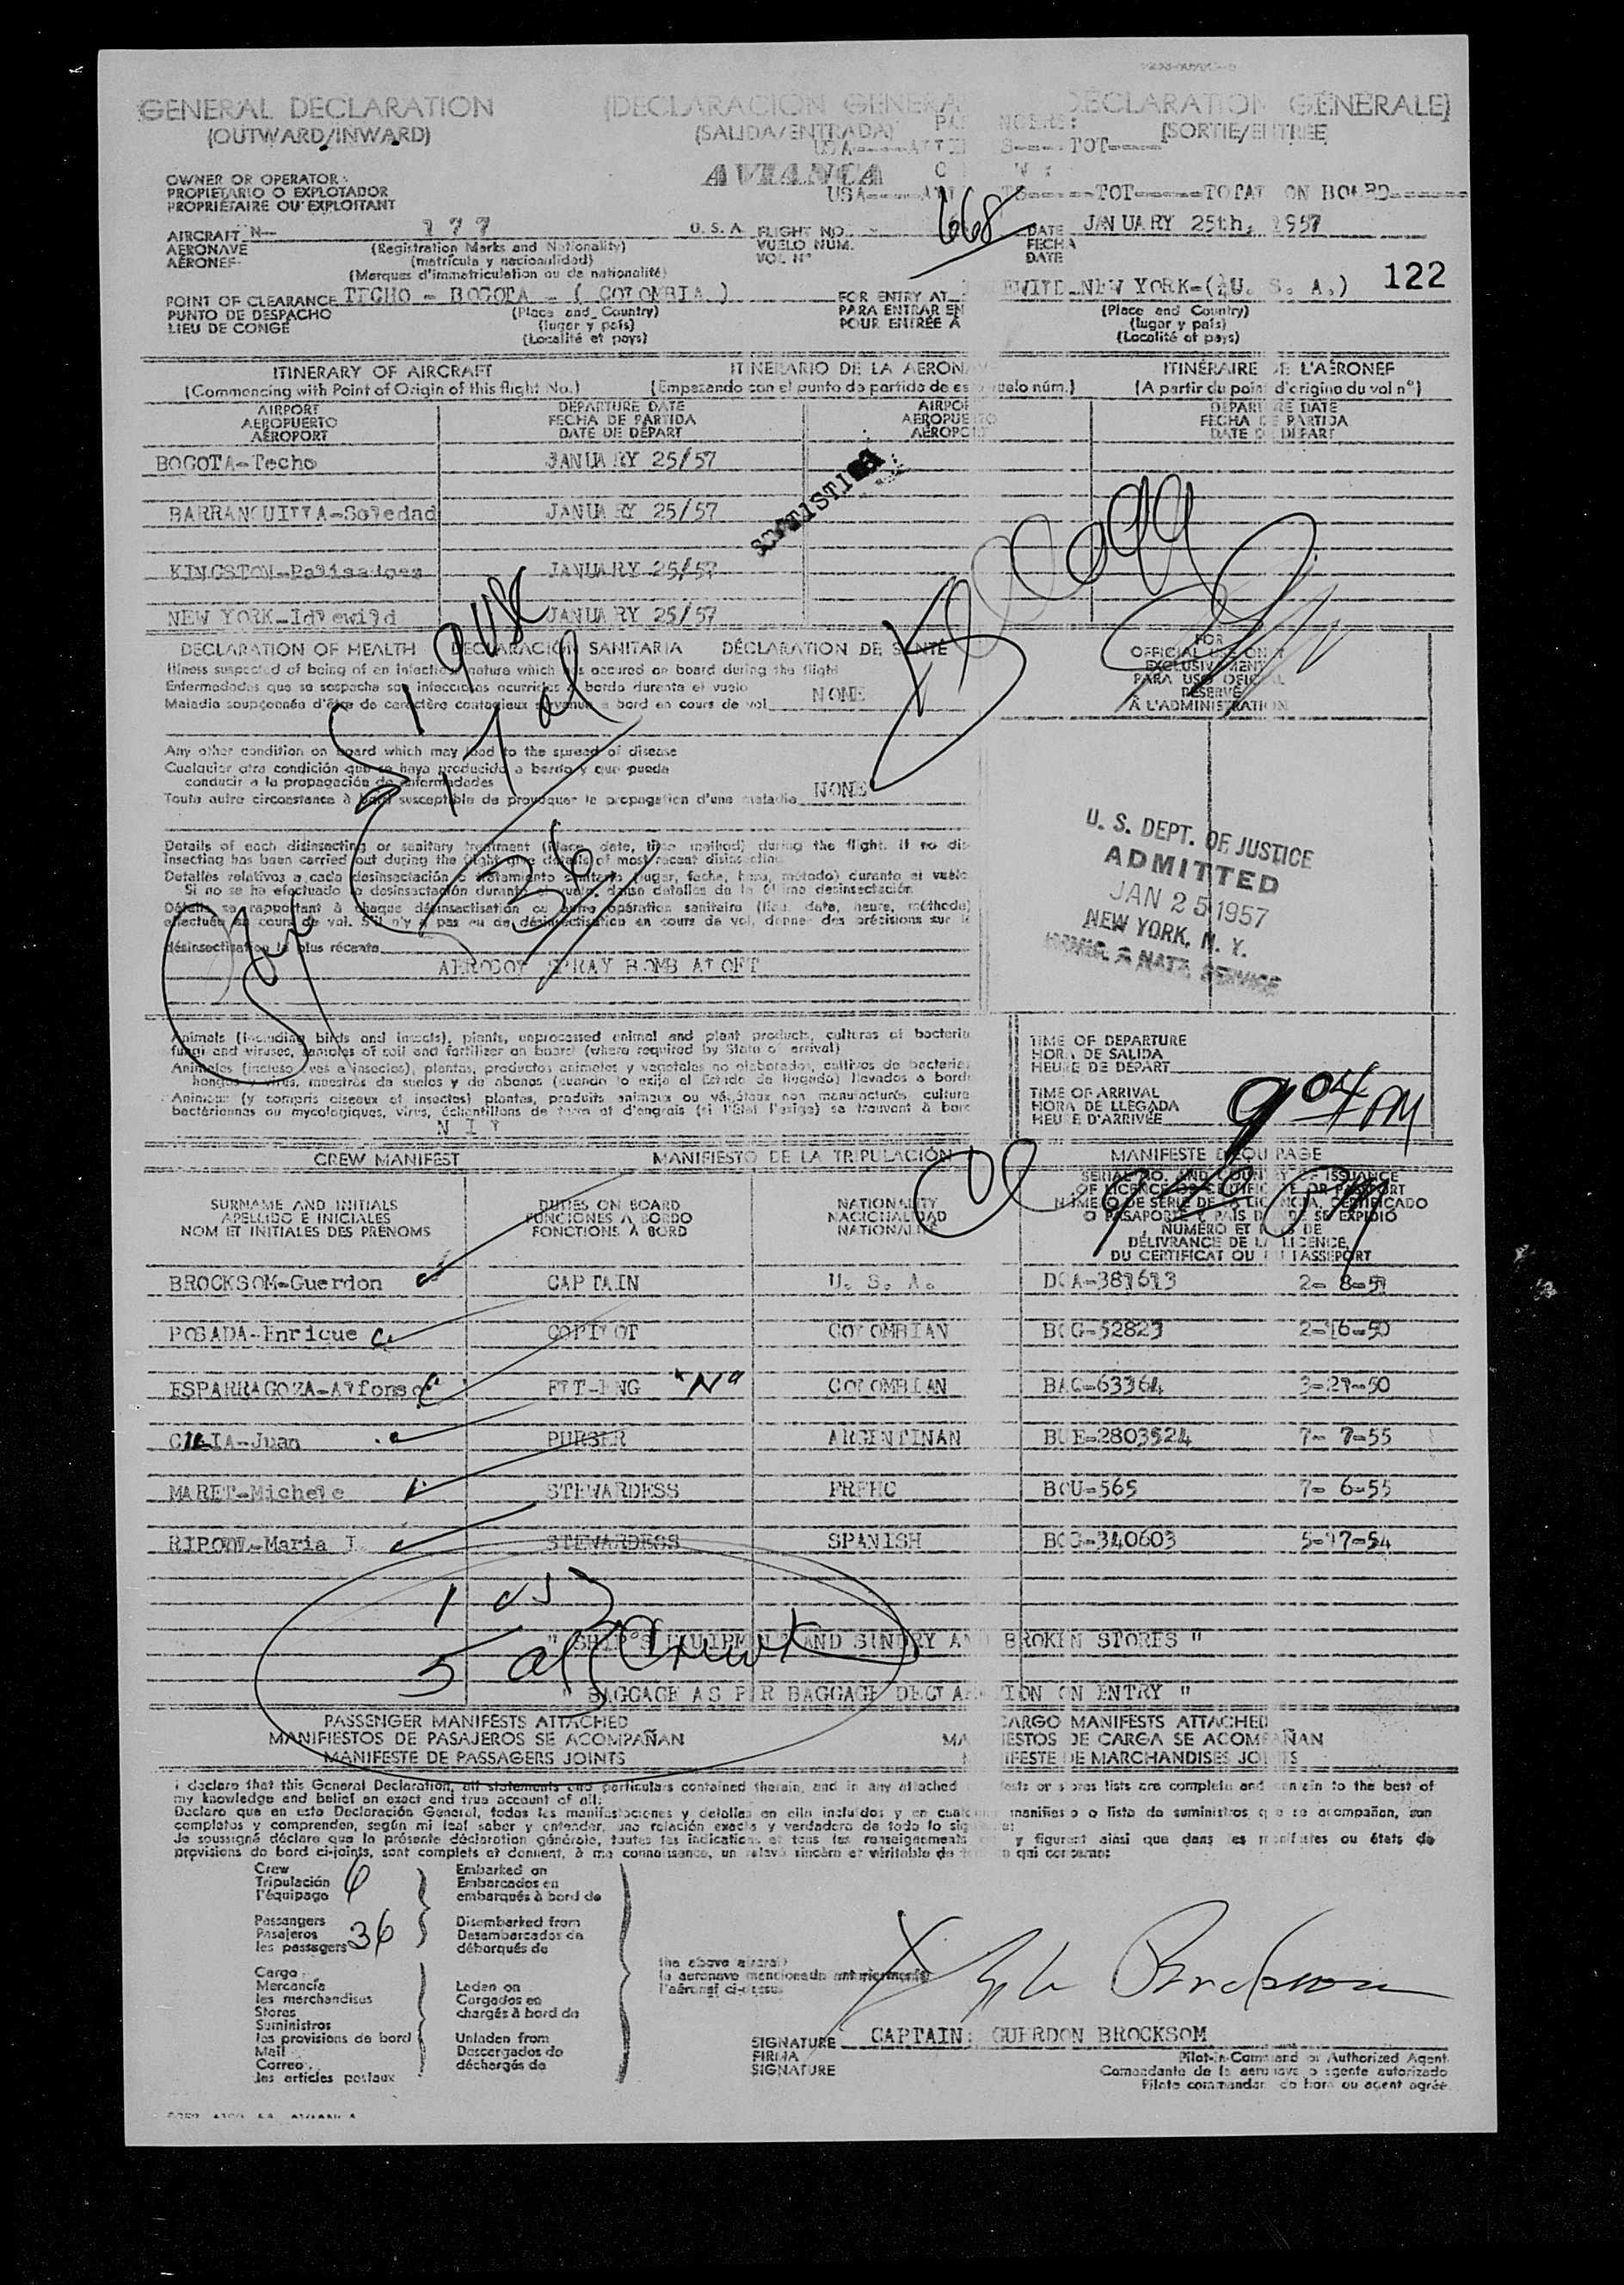 GENERAL DECLARATION (DECLARACION GENERA DÉCLARATION GÉNÉRALE)
(OUTWARD/INWARD) (SALIDA/ENTRADA) (SORTIE/ENTRÉE
AVIANCA
OWNER OR OPERATOR
PROPIETARIO O EXPLOTADOR
PROPRIÉTAIRE OU EXPLOITANT
AIRCRAFT N- 177 U.S.A. FLIGHT NO. 668 DATE JANUARY 25th, 1957
AERONAVE (Registration Marks and Nationality) VUELO NUM. FECHA
AÉRONEF (matrícula y nacionalidad) VOL N° DATE
(Marques d'immatriculation ou de nationalité)
122
POINT OF CLEARANCE TECHO - BOGOTA - ( COLOMBIA ) FOR ENTRY AT EWILD-NEW YORK-(U. S. A.)
PUNTO DE DESPACHO (Place and Country) PARA ENTRAR EN (Place and Country)
LIEU DE CONGÉ (lugar y país) POUR ENTRÉE A (lugar y país)
(Localité et pays) (Localité et pays)
ITINERARY OF AIRCRAFT ITINERARIO DE LA AERONAV ITINÉRAIRE DE L'AÉRONEF
(Commencing with Point of Origin of this flight No.) (Empezando con el punto de partida de es vuelo núm.) (A partir du point d'origine du vol n°)
AIRPORT DEPARTURE DATE AIRPO DEPARTURE DATE
AEROPUERTO FECHA DE PARTIDA AEROPUERTO FECHA DE PARTIDA
AÉROPORT DATE DE DÉPART AÉROPORT DATE DE DÉPART
BOGOTA-Techo JANUARY 25/57
BARRANQUILLA-Soledad JANUARY 25/57
KINGSTON-Palisadoes JANUARY 25/57
NEW YORK-Idlewild JANUARY 25/57
DECLARATION OF HEALTH DECLARACIÓN SANITARIA DÉCLARATION DE SANTÉ
Illness suspected of being of an infectious nature which has occured on board during the flight
Enfermedades que se sospecha son infecciosas ocurridas a bordo durante el vuelo
Maladie soupçonnée d'être de caractère contagieux survenue à bord en cours de vol NONE
FOR
OFFICIAL USE ONLY
EXCLUSIVEMENT
PARA USO OFICIAL
RÉSERVÉ
À L'ADMINISTRATION
Any other condition on board which may lead to the spread of disease
Cualquier otra condición que se haya producido a bordo y que pueda
conducir a la propagación de enfermedades
Toute autre circonstance à bord susceptible de provoquer la propagation d'une maladie NONE
36
Details of each disinsecting or sanitary treatment (place, date, time method) during the flight. If no dis-
insecting has been carried out during the flight give details of most recent disinsecting
Detalles relativos a cada desinsectación o tratamiento sanitario (lugar, fecha, hora, método) durante el vuelo
Si no se ha efectuado la desinsectación durante el vuelo, dense detalles de la última desinsectación
Détails se rapportant à chaque désinsectisation ou autre opération sanitaire (lieu, date, heure, méthode)
effectuée au cours de vol. S'il n'y a pas eu de désinsectisation en cours de vol, donner des précisions sur la
désinsectisation la plus récente
AEROSOL SPRAY BOMB ALOFT
U. S. DEPT. OF JUSTICE
ADMITTED
JAN 25 1957
NEW YORK, N. Y.
IMMIG. & NATZ. SERVICE
Animals (including birds and insects), plants, unprocessed animal and plant products, cultures of bacteria
fungi and viruses, samples of soil and fertilizer on board (where required by State of arrival)
Animales (incluso aves e insectos), plantas, productos animales y vegetales no elaborados, cultivos de bacterias
hongos y virus, muestras de suelos y de abonos (cuando lo exija el Estado de llegada) llevados a bordo
Animaux (y compris oiseaux et insectes) plantes, produits animaux ou végétaux non manufacturés culture
bactériennes ou mycologiques, virus, échantillons de terre et d'engrais (si l'État l'exige) se trouvant à bord
N I L
TIME OF DEPARTURE
HORA DE SALIDA
HEURE DE DÉPART
TIME OF ARRIVAL
HORA DE LLEGADA 9 04 PM
HEURE D'ARRIVÉE
CREW MANIFEST MANIFIESTO DE LA TRIPULACIÓN MANIFESTE D'ÉQUIPAGE
SURNAME AND INITIALS DUTIES ON BOARD NATIONALITY SERIAL NO. AND COUNTRY OF ISSUANCE
APELLIDO E INICIALES FUNCIONES A BORDO NACIONALIDAD OF LICENCE OR CERTIFICATE OR PASSPORT
NOM ET INITIALES DES PRÉNOMS FONCTIONS À BORD NATIONALITÉ NUMERO DE SERIE DE LA LICENCIA, CERTIFICADO
O PASAPORTE Y PAIS DONDE SE EXPIDIÓ
NUMÉRO ET PAYS DE
DÉLIVRANCE DE LA LICENCE,
DU CERTIFICAT OU DU PASSEPORT
BROCKSOM-Guerdon CAPTAIN U. S. A. DCA-381613 2- 8-51
POSADA-Enrique COPILOT COLOMBIAN BOG-52823 2-16-50
ESPARRAGOZA-Alfonso FLT-ENG "N" COLOMBIAN BAC-63364 3-29-50
-Juan PURSER ARGENTINAN BUE-2803524 7- 7-55
MARET-Michele STEWARDESS FREHC BOU-565 7- 6-55
RIPOLL-Maria I. STEWARDESS SPANISH BOG-340603 5-17-54
1 US
5 al Crew
" SHIP'S EQUIPMENT AND SUNDRY AND BROKEN STORES "
" BAGGAGE AS PER BAGGAGE DECLARATION ON ENTRY "
PASSENGER MANIFESTS ATTACHED CARGO MANIFESTS ATTACHED
MANIFIESTOS DE PASAJEROS SE ACOMPAÑAN MA IESTOS DE CARGA SE ACOMPAÑAN
MANIFESTE DE PASSAGERS JOINTS M IFESTE DE MARCHANDISES JOINTS
I declare that this General Declaration, all statements and particulars contained therein, and in any attached fests or stores lists are complete and contain to the best of
my knowledge and belief an exact and true account of all:
Declaro que en esta Declaración General, todas las manifestaciones y detalles en ella incluidos y en cualq manifiesto o lista de suministros que se acompañan, son
completos y comprenden, según mi leal saber y entender, una relación exacta y verdadera de todo lo sig
Je soussigné déclare que la présente déclaration générale, toutes les indications et tous les renseignements y figurent ainsi que dans les manifestes ou états de
provisions de bord ci-joints, sont complets et donnent, à ma connaissance, un relevé sincère et véritable de qui concerne:
Crew Embarked on
Tripulación 6 Embarcados en
l'équipage embarqués à bord de
Passengers Disembarked from
Pasajeros 36 Desembarcados de
les passagers débarqués de
the above aircraft
la aeronave mencionada anteriormente
l'aéronef ci-dessus
Cargo
Mercancía Laden on
les marchandises Cargados en
Stores chargés à bord de
Suministros
les provisions de bord Unladen from
Mail Descargados de
Correo déchargés de
les articles postaux
SIGNATURE CAPTAIN: GUERDON BROCKSOM
FIRMA Pilot-in-Command or Authorized Agent
SIGNATURE Comandante de la aeronave o agente autorizado
Pilote commandant de bord ou agent agréé